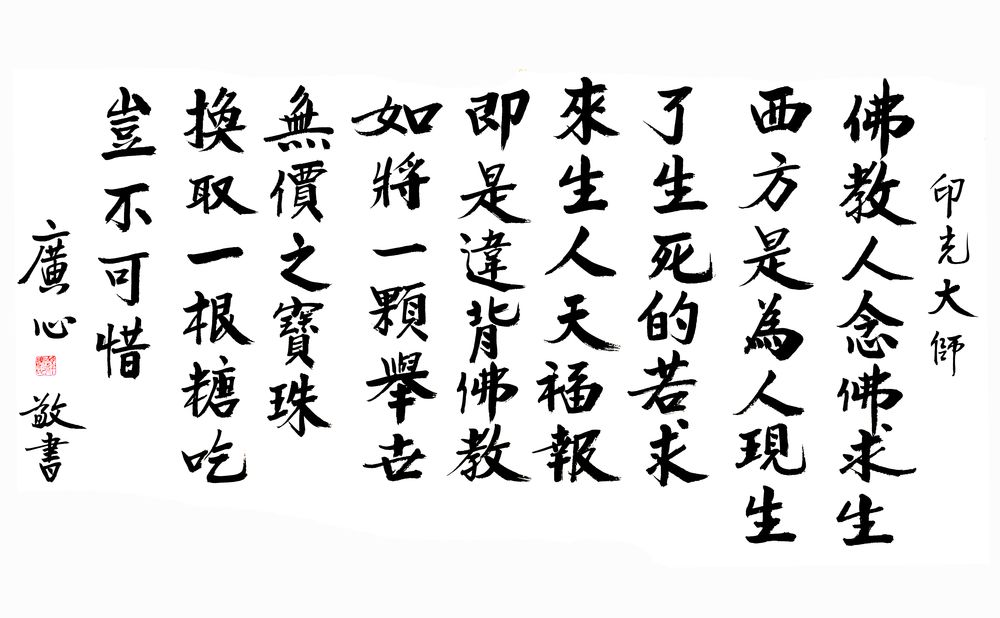 印光大師
佛教人念佛求生
西方是為人現生
了生死的若求
來生人天福報
即是違背佛教
如將一顆舉世
無價之寶珠
換取一根糖吃
豈不可惜
廣心
敬書